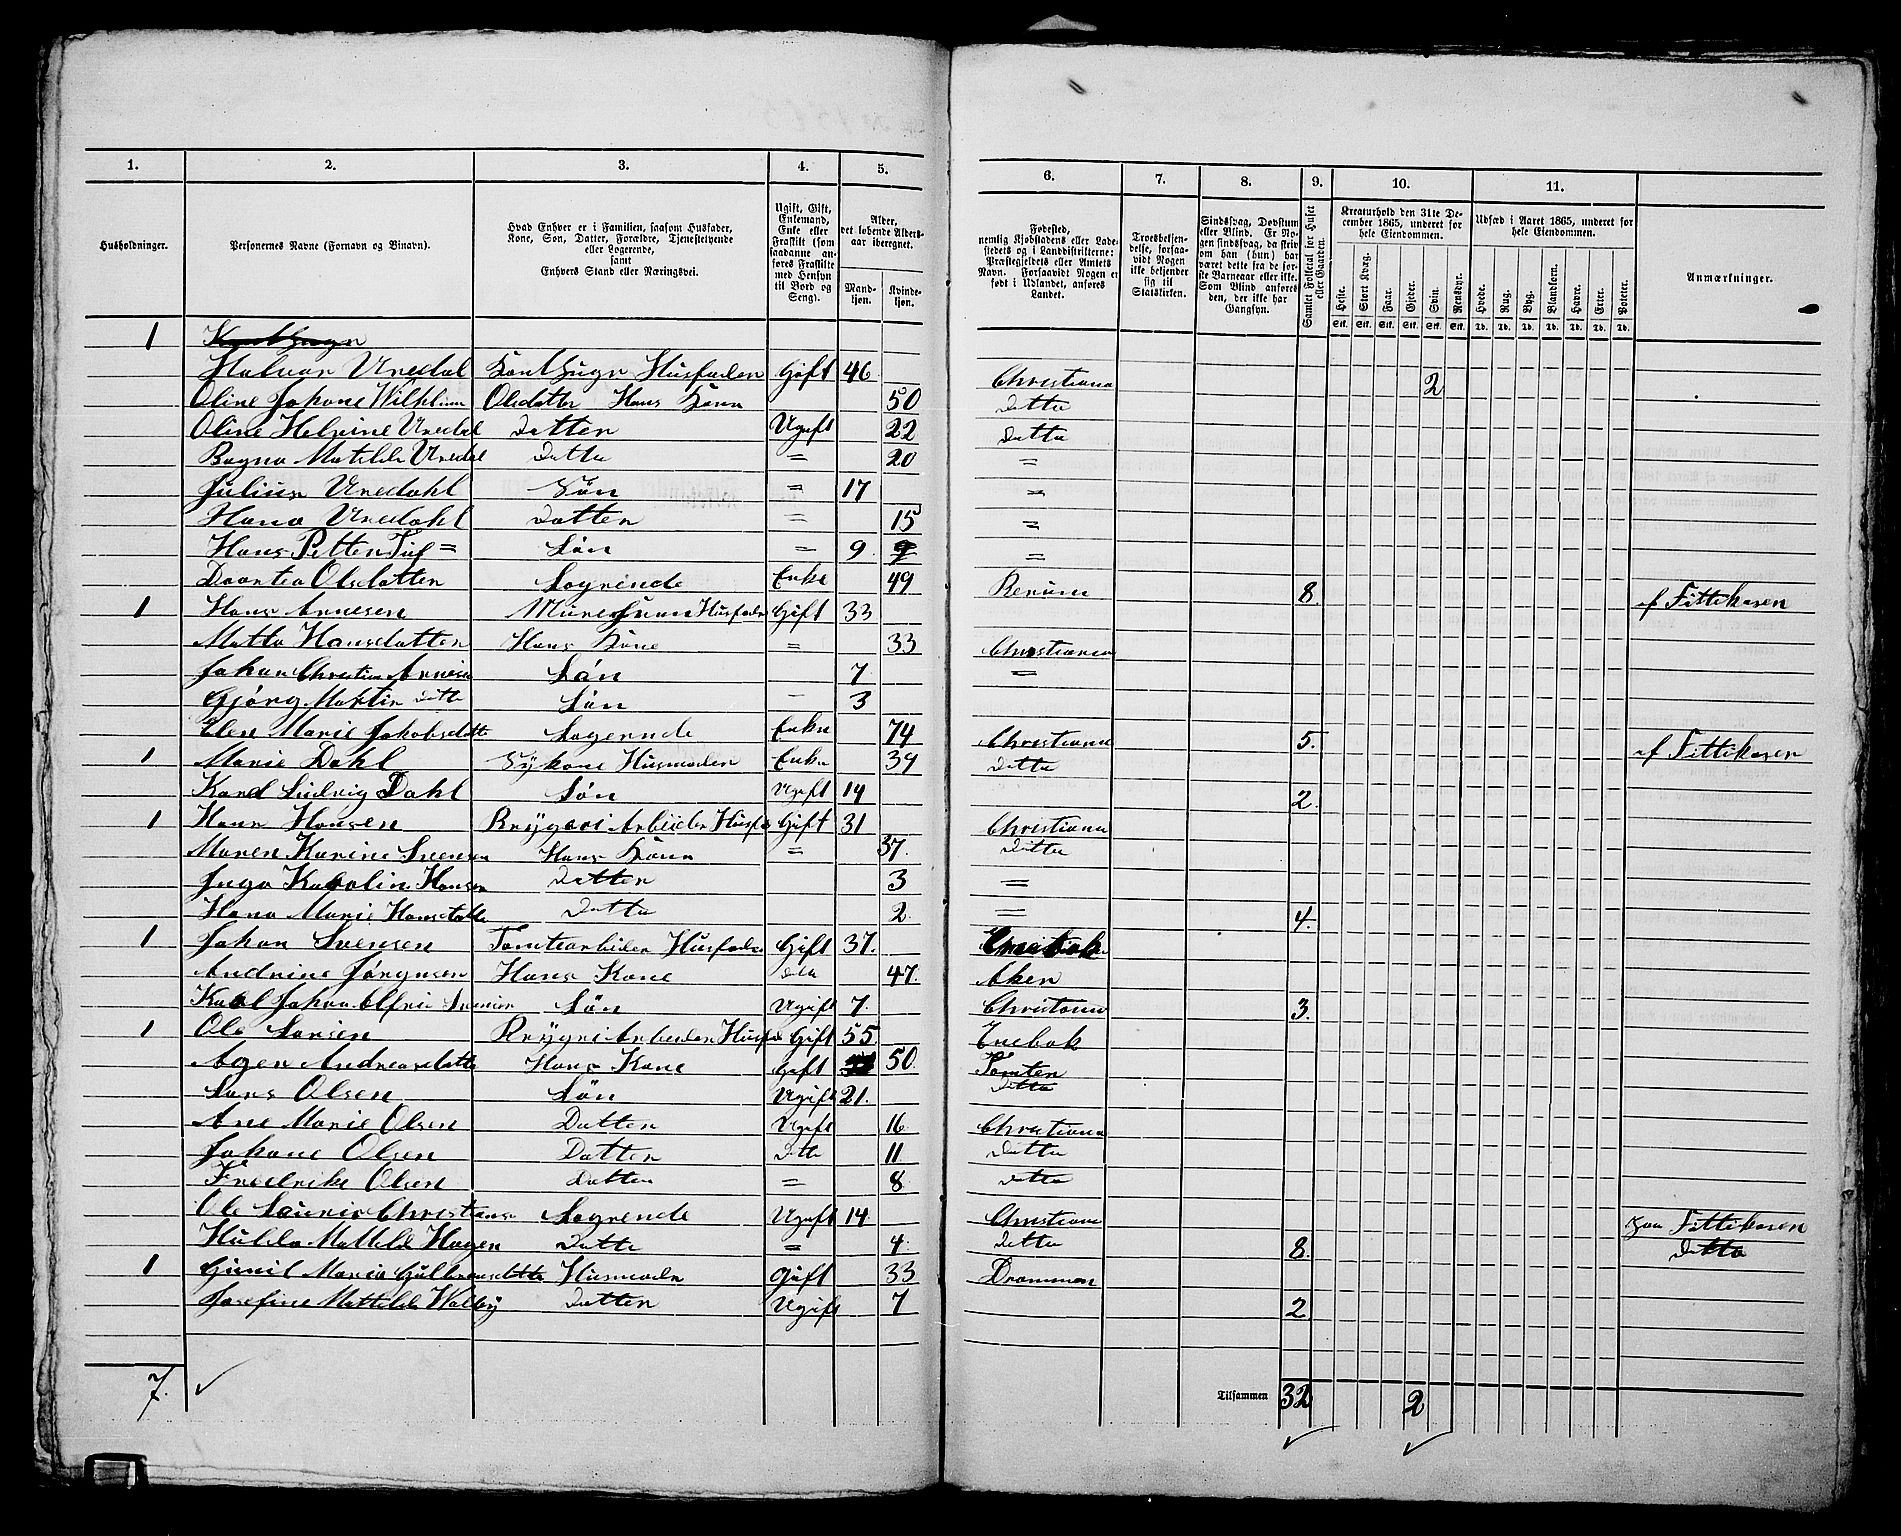 1. 2. 3. 4. 5. 6. 7. 8. 9. 10. 11.
Husholdninger.
Personernes Navne (Fornavn og Tilnavn).
Hvad Enhver er i Familien, saasom Husfader, Kone, Søn, Datter, Forældre, Tjenestetyende eller Logerende, samt Enhvers Stand eller Næringsvei.
Ugift, Gift, Enkemand, Enke eller Fraskilt (som saadanne anføres Fraskilte med Hensyn til Bord og Seng).
Alder, det løbende Aldersaar iberegnet.
Mandkjøn. Kvindekjøn.
Fødested, nemlig Kjøbstadens eller Ladestedets og i Landdistrikterne: Præstegjeldets eller Amtets Navn. Forsaavidt Nogen er født i Udlandet, anføres Landet.
Troesbekjendelse, forsaavidt Nogen ikke bekjender sig til Statskirken.
Sindssvag, Døvstum eller Blind. Er Nogen sindssvag, da skriv om han (hun) har været dette fra de første Barneaar eller ikke. Som Blind anføres den, der ikke har Gangsyn.
Samlet Folketal for Huset eller Gaarden.
Kreaturhold den 31te December 1865, underet for hele Eiendommen.
Heste. Stort Kvæg. Faar. Gjeder. Svin. Rensdyr.
Stk. Stk. Stk. Stk. Stk. Stk.
Udsæd i Aaret 1865, underet for hele Eiendommen.
Hvede. Rug. Byg. Blandkorn. Havre. Erter. Poteter.
Td. Td. Td. Td. Td. Td. Td.
Anmærkninger.
1
Halvor Uredal Husfader Gift 46 Christiana 2
Oline Johane Olsdatter Hans Kone 50 Ditto
Oline Uredal Datter Ugift 22 Ditto
Ragna Matilde Uredal Ditto = 20 =
Julius Uredahl Søn = 17 =
Hana Uredahl Datter = 15 =
Hans Petter = Søn = 9 =
Olsdatter Logrinde Enke 49 8.
1 Hans Arnesen Husfader Gift 33 af Fittikasen
Matta Hansdatter Hans Kone = 33 Christiania
Johan Christian Arnesen Søn 7 =
Gjørg Martin Ditto Søn 3
Elen Marie Jakobsdatter Logernde Enke 74 Christiana 5. af Fittikasen
1 Marie Dahl Sykone Husmoder Enke 39 Ditto
Karl Ludvig Dahl Søn Ugift 14 2.
1 Hans Hansen Brygeri Arbeider Husfa Gift 31 Christiana
Maren Karine Svensen Hans Kone = 37. Ditto
Inga Karolin Hansen Datter 3 =
Hana Marie Hansdatte Ditto 2. = 4.
1 Johan Svensen Tomtearbeider Husfader Gift 37.
Andrine Jørgnsen Hans Kone Ditto 47. Aker
Karl Johan Alfrie Svensen Søn Ugift 7. Christiana 3.
1 Ole Larsen Brygri Arbeider Husfa Gift 55. Enebak
Andreasdatte Hans Kone Gift 50. Tomten
Lars Olsen Søn Ugift 21. Ditto
Ane Marie Olsen Datter Ugift 16 Christiana
Johane Olsen Datter Ditto 11 Ditto
Fredrike Olsen Datter = 8 Ditto
Ole Lauris Christianse Logrende Ugift 14 Christiana paa Fittikasen
Hulda Mattilde Hagen Ditto = 4. Ditto 8. Ditto
1 Gunil Maria Gulbransdatte Husmoder Gift 33 Drammen
Josefine Mattilde Walby Datter Ugift 7 2.
7. Tilsammen 32 2